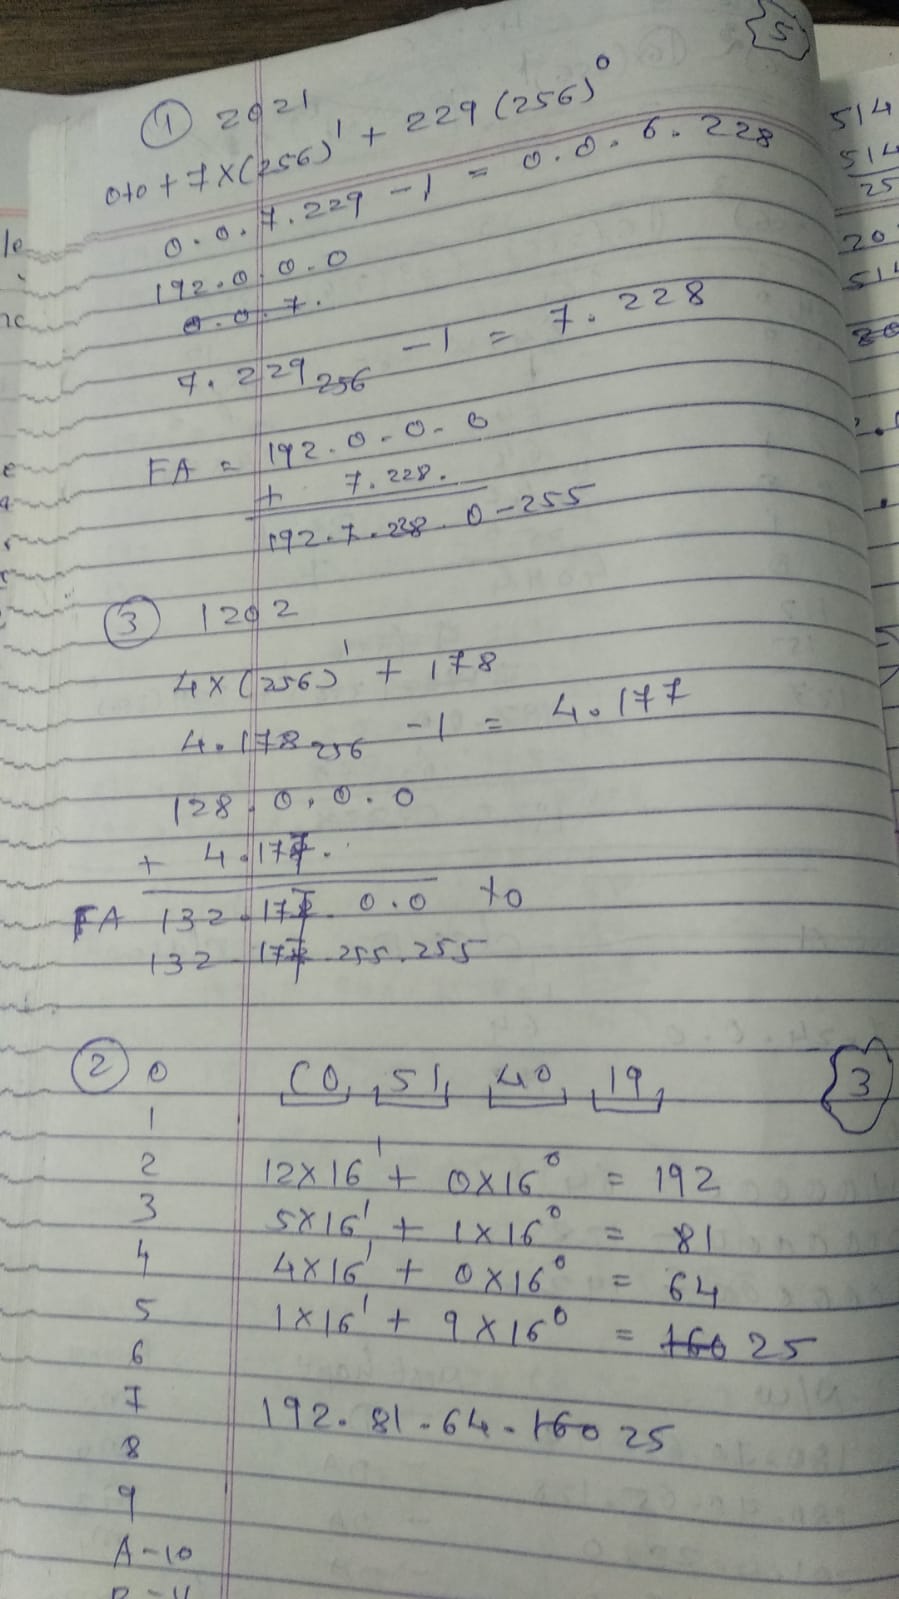 5
① 2021
0+0 + 7×(256)¹ + 229(256)⁰
0.0.7.229 - 1 = 0.0.6.228
192.0.0.0
0.0.7.
7.229₂₅₆ - 1 = 7.228
FA = 192.0.0.0
+ 7.228.
192.7.228.0-255
③ 1202
4×(256)¹ + 178
4.178₂₅₆ - 1 = 4.177
128.0.0.0
+ 4.177.
FA 132.177.0.0 to
132 177 255.255
② 0 C0 51 40 19 3
1
2 12×16¹ + 0×16⁰ = 192
3 5×16¹ + 1×16⁰ = 81
4 4×16¹ + 0×16⁰ = 64
5 1×16¹ + 9×16⁰ = 160 25
6
7 192.81.64.160 25
8
9
A-10
514
514
25
20